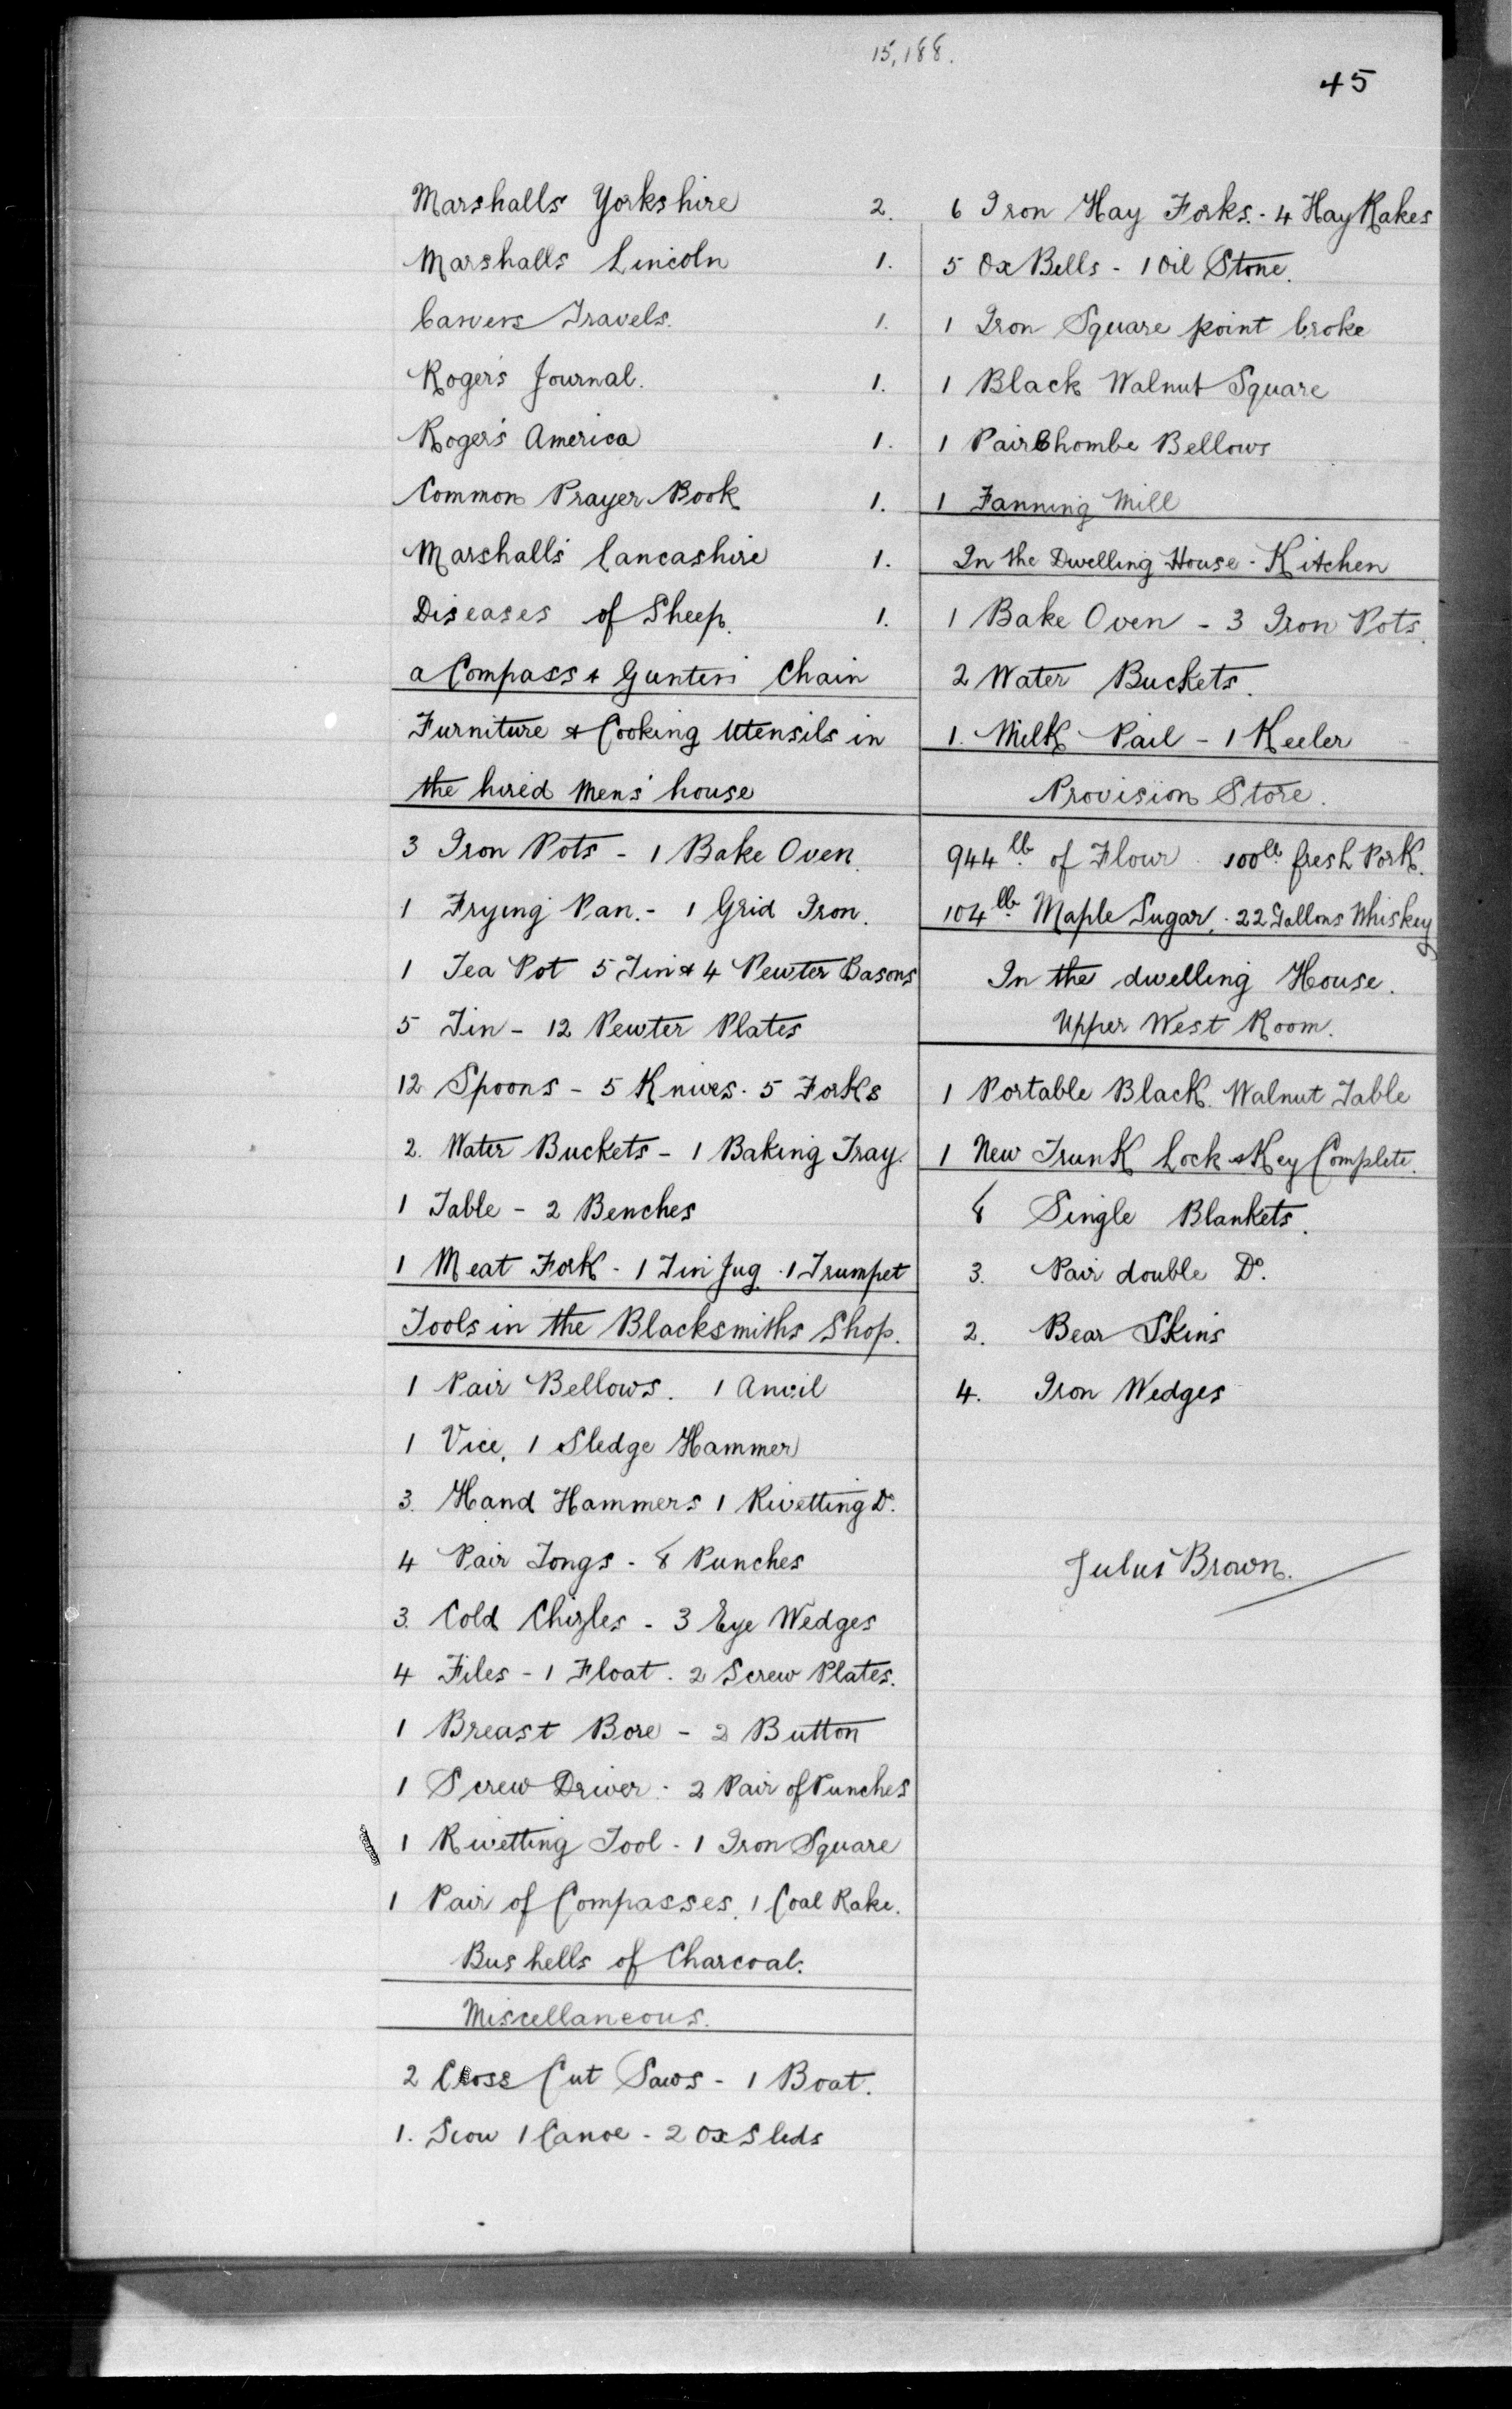 15,188.
45
Marshalls Yorkshire 2.
Marshalls Lincoln 1.
Carvers Travels. 1.
Roger's Journal. 1.
Roger's America 1.
Common Prayer Book 1.
Marshall's Lancashire 1.
Diseases of Sheep. 1.
a Compass & Gunters Chain
Furniture & Cooking Utensils in
the hired Mens' house
3 Iron Pots - 1 Bake Oven.
1 Frying Pan. - 1 Grid Iron.
1 Tea Pot 5 Tin & 4 Pewter Basons
5 Tin - 12 Pewter Plates
12 Spoons - 5 Knives. 5 Forks
2. Water Buckets - 1 Baking Tray.
1 Table - 2 Benches
1 Meat Fork - 1 Tin Jug. 1 Trumpet
Tools in the Blacksmiths Shop.
1 Pair Bellows. 1 Anvil
1 Vice, 1 Sledge Hammer
3. Hand Hammers 1 Rivetting Do.
4 Pair Tongs - 8 Punches
3. Cold Chizles - 3 Eye Wedges
4 Files - 1 Float. 2 Screw Plates.
1 Breast Bore - 2 Button
1 Screw Driver. 2 Pair of Punches
1 Rivetting Tool - 1 Iron Square
1 Pair of Compasses. 1 Coal Rake.
Bushells of Charcoal.
Miscellaneous.
2 Cross Cut Saws - 1 Boat.
1. Scow 1 Canoe - 2 Ox Sleds
6 Iron Hay Forks. - 4 Hay Rakes
5 Ox Bells - 1 Oil Stone.
1 Iron Square point broke
1 Black Walnut Square
1 Pair Chombe Bellows
1 Fanning Mill
In the Dwelling House - Kitchen
1 Bake Oven - 3 Iron Pots.
2 Water Buckets.
1. Milk Pail - 1 Keeler
Provision Store.
944 lb. of Flour. 100 lb. fresh Pork.
104 lb. Maple Sugar. - 22 Gallons Whiskey
In the dwelling House.
Upper West Room.
1 Portable Black Walnut Table
1 New Trunk Lock & Key Complete.
8 Single Blankets.
3. Pair double Do.
2. Bear Skins
4. Iron Wedges
Julus Brown.